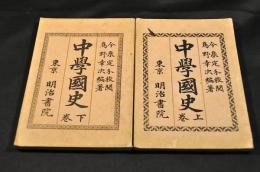 今泉定介校閲
鳥野幸次編著
中學國史
上卷
東京 明治書院
今泉定介校閲
鳥野幸次編著
中學國史
下卷
東京 明治書院